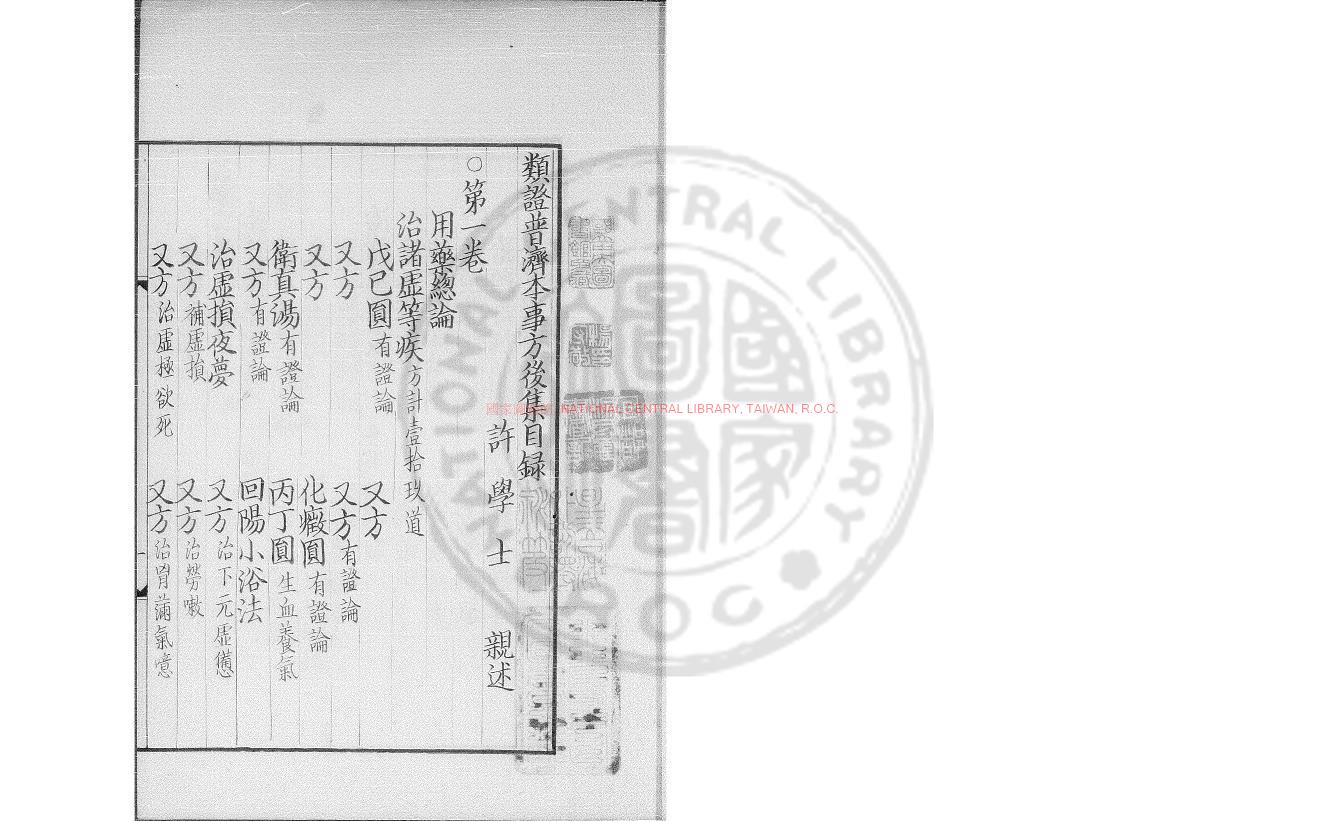 類證普濟本事方後集目録
許學士 親述
○第一卷
用藥總論
治諸虛等疾方計壹拾玖道
戊己圓有證論 又方
又方 又方有證論
又方 化癥圓有證論
衛真湯有證論 丙丁圓生血養氣
又方有證論 回陽小浴法
治虛損夜夢 又方治下元虛憊
又方補虛損 又方治勞嗽
又方治虛極欲死 又方治胃滿氣噫
國家圖書館, NATIONAL CENTRAL LIBRARY, TAIWAN, R.O.C.
NATIONAL CENTRAL LIBRARY
R.O.C.
國家圖書館